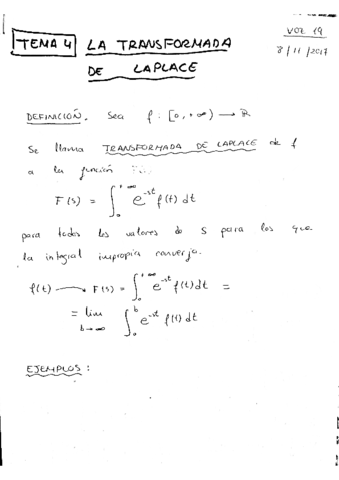 TEMA 4 LA TRANSFORMADA
DE LAPLACE
VOZ 19
8/11/2017
DEFINICIÓN. Sea f: [0, +∞) → ℝ
Se llama TRANSFORMADA DE LAPLACE de f
a la función
F(s) = ∫₀^{+∞} e^{-st} f(t) dt
para todos los valores de s para los que
la integral impropia converja.
f(t) → F(s) = ∫₀^{+∞} e^{-st} f(t) dt =
= lim_{b→∞} ∫₀^{b} e^{-st} f(t) dt
EJEMPLOS: